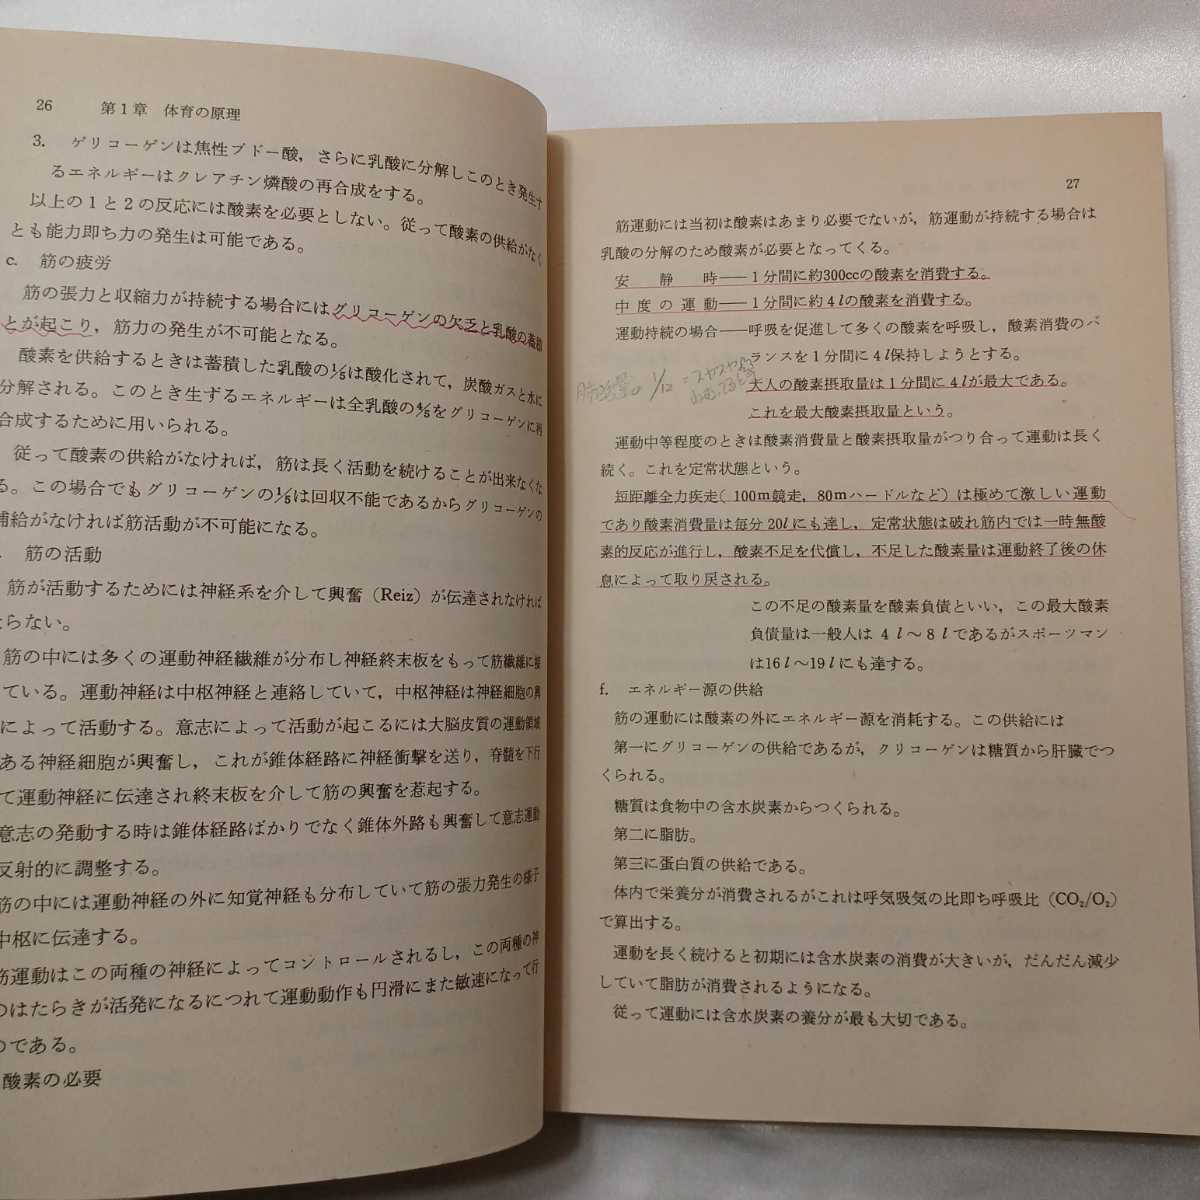 26　第1章　体育の原理
3.　ゲリコーゲンは焦性ブドー酸，さらに乳酸に分解しこのとき発生す
るエネルギーはクレアチン燐酸の再合成をする。
以上の1と2の反応には酸素を必要としない。従って酸素の供給がなく
とも能力即ち力の発生は可能である。
c.　筋の疲労
筋の張力と収縮力が持続する場合にはグリコーゲンの欠乏と乳酸の蓄積
とが起こり，筋力の発生が不可能となる。
酸素を供給するときは蓄積した乳酸の1/5は酸化されて，炭酸ガスと水に
分解される。このとき生ずるエネルギーは全乳酸の4/5をグリコーゲンに再
合成するために用いられる。
従って酸素の供給がなければ，筋は長く活動を続けることが出来なくな
る。この場合でもグリコーゲンの1/5は回収不能であるからグリコーゲンの
補給がなければ筋活動が不可能になる。
筋の活動
筋が活動するためには神経系を介して興奮（Reiz）が伝達されなければ
ならない。
筋の中には多くの運動神経繊維が分布し神経終末板をもって筋繊維に接
ている。運動神経は中枢神経と連絡していて，中枢神経は神経細胞の興
によって活動する。意志によって活動が起こるには大脳皮質の運動領域
ある神経細胞が興奮し，これが錐体経路に神経衝撃を送り，脊髄を下行
て運動神経に伝達され終末板を介して筋の興奮を惹起する。
意志の発動する時は錐体経路ばかりでなく錐体外路も興奮して意志運動
反射的に調整する。
筋の中には運動神経の外に知覚神経も分布していて筋の張力発生の様子
中枢に伝達する。
筋運動はこの両種の神経によってコントロールされるし，この両種の神
のはたらきが活発になるにつれて運動動作も円滑にまた敏速になって行
のである。
酸素の必要
27
筋運動には当初は酸素はあまり必要でないが，筋運動が持続する場合は
乳酸の分解のため酸素が必要となってくる。
安　静　時——1分間に約300ccの酸素を消費する。
中度の運動——1分間に約4lの酸素を消費する。
運動持続の場合——呼吸を促進して多くの酸素を呼吸し，酸素消費のバ
ランスを1分間に4l保持しようとする。
大人の酸素摂取量は1分間に4lが最大である。
これを最大酸素摂取量という。
運動中等程度のときは酸素消費量と酸素摂取量がつり合って運動は長く
続く。これを定常状態という。
短距離全力疾走（100m競走，80mハードルなど）は極めて激しい運動
であり酸素消費量は毎分20lにも達し，定常状態は破れ筋内では一時無酸
素的反応が進行し，酸素不足を代償し，不足した酸素量は運動終了後の休
息によって取り戻される。
この不足の酸素量を酸素負債といい，この最大酸素
負債量は一般人は4l～8lであるがスポーツマン
は16l～19lにも達する。
f.　エネルギー源の供給
筋の運動には酸素の外にエネルギー源を消耗する。この供給には
第一にグリコーゲンの供給であるが，クリコーゲンは糖質から肝臓でつ
くられる。
糖質は食物中の含水炭素からつくられる。
第二に脂肪。
第三に蛋白質の供給である。
体内で栄養分が消費されるがこれは呼気吸気の比即ち呼吸比（CO₂/O₂）
で算出する。
運動を長く続けると初期には含水炭素の消費が大きいが，だんだん減少
していて脂肪が消費されるようになる。
従って運動には含水炭素の養分が最も大切である。